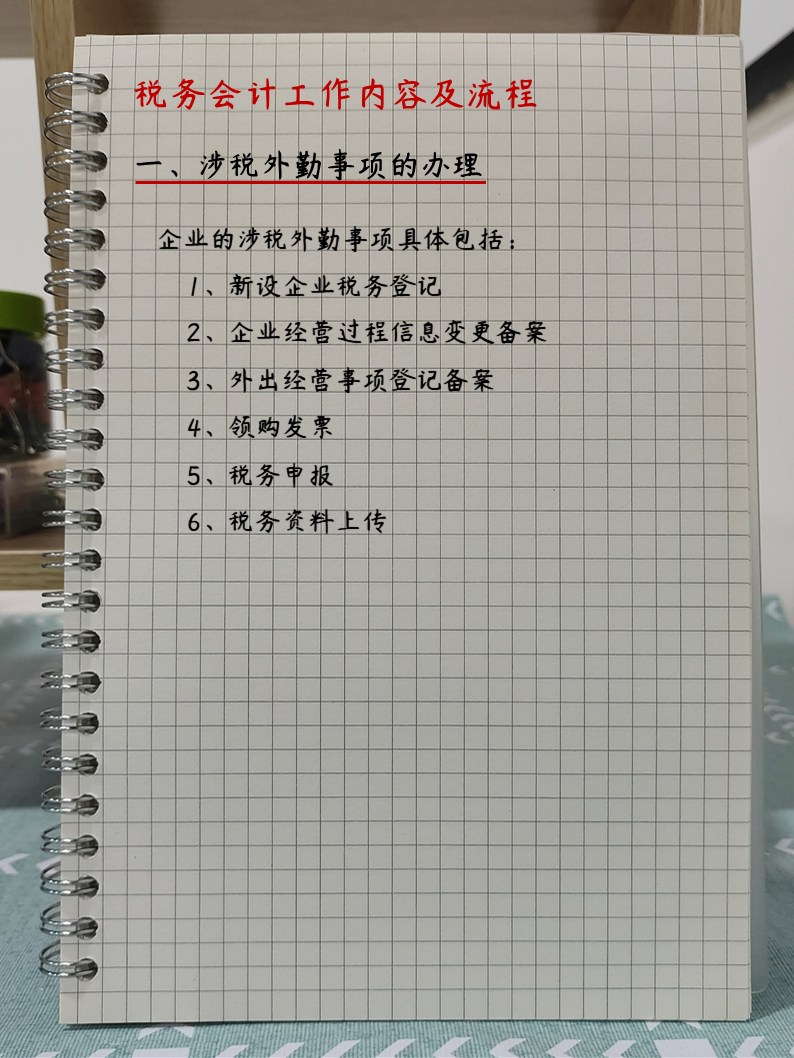 税务会计工作内容及流程
一、涉税外勤事项的办理
企业的涉税外勤事项具体包括：
1、新设企业税务登记
2、企业经营过程信息变更备案
3、外出经营事项登记备案
4、领购发票
5、税务申报
6、税务资料上传